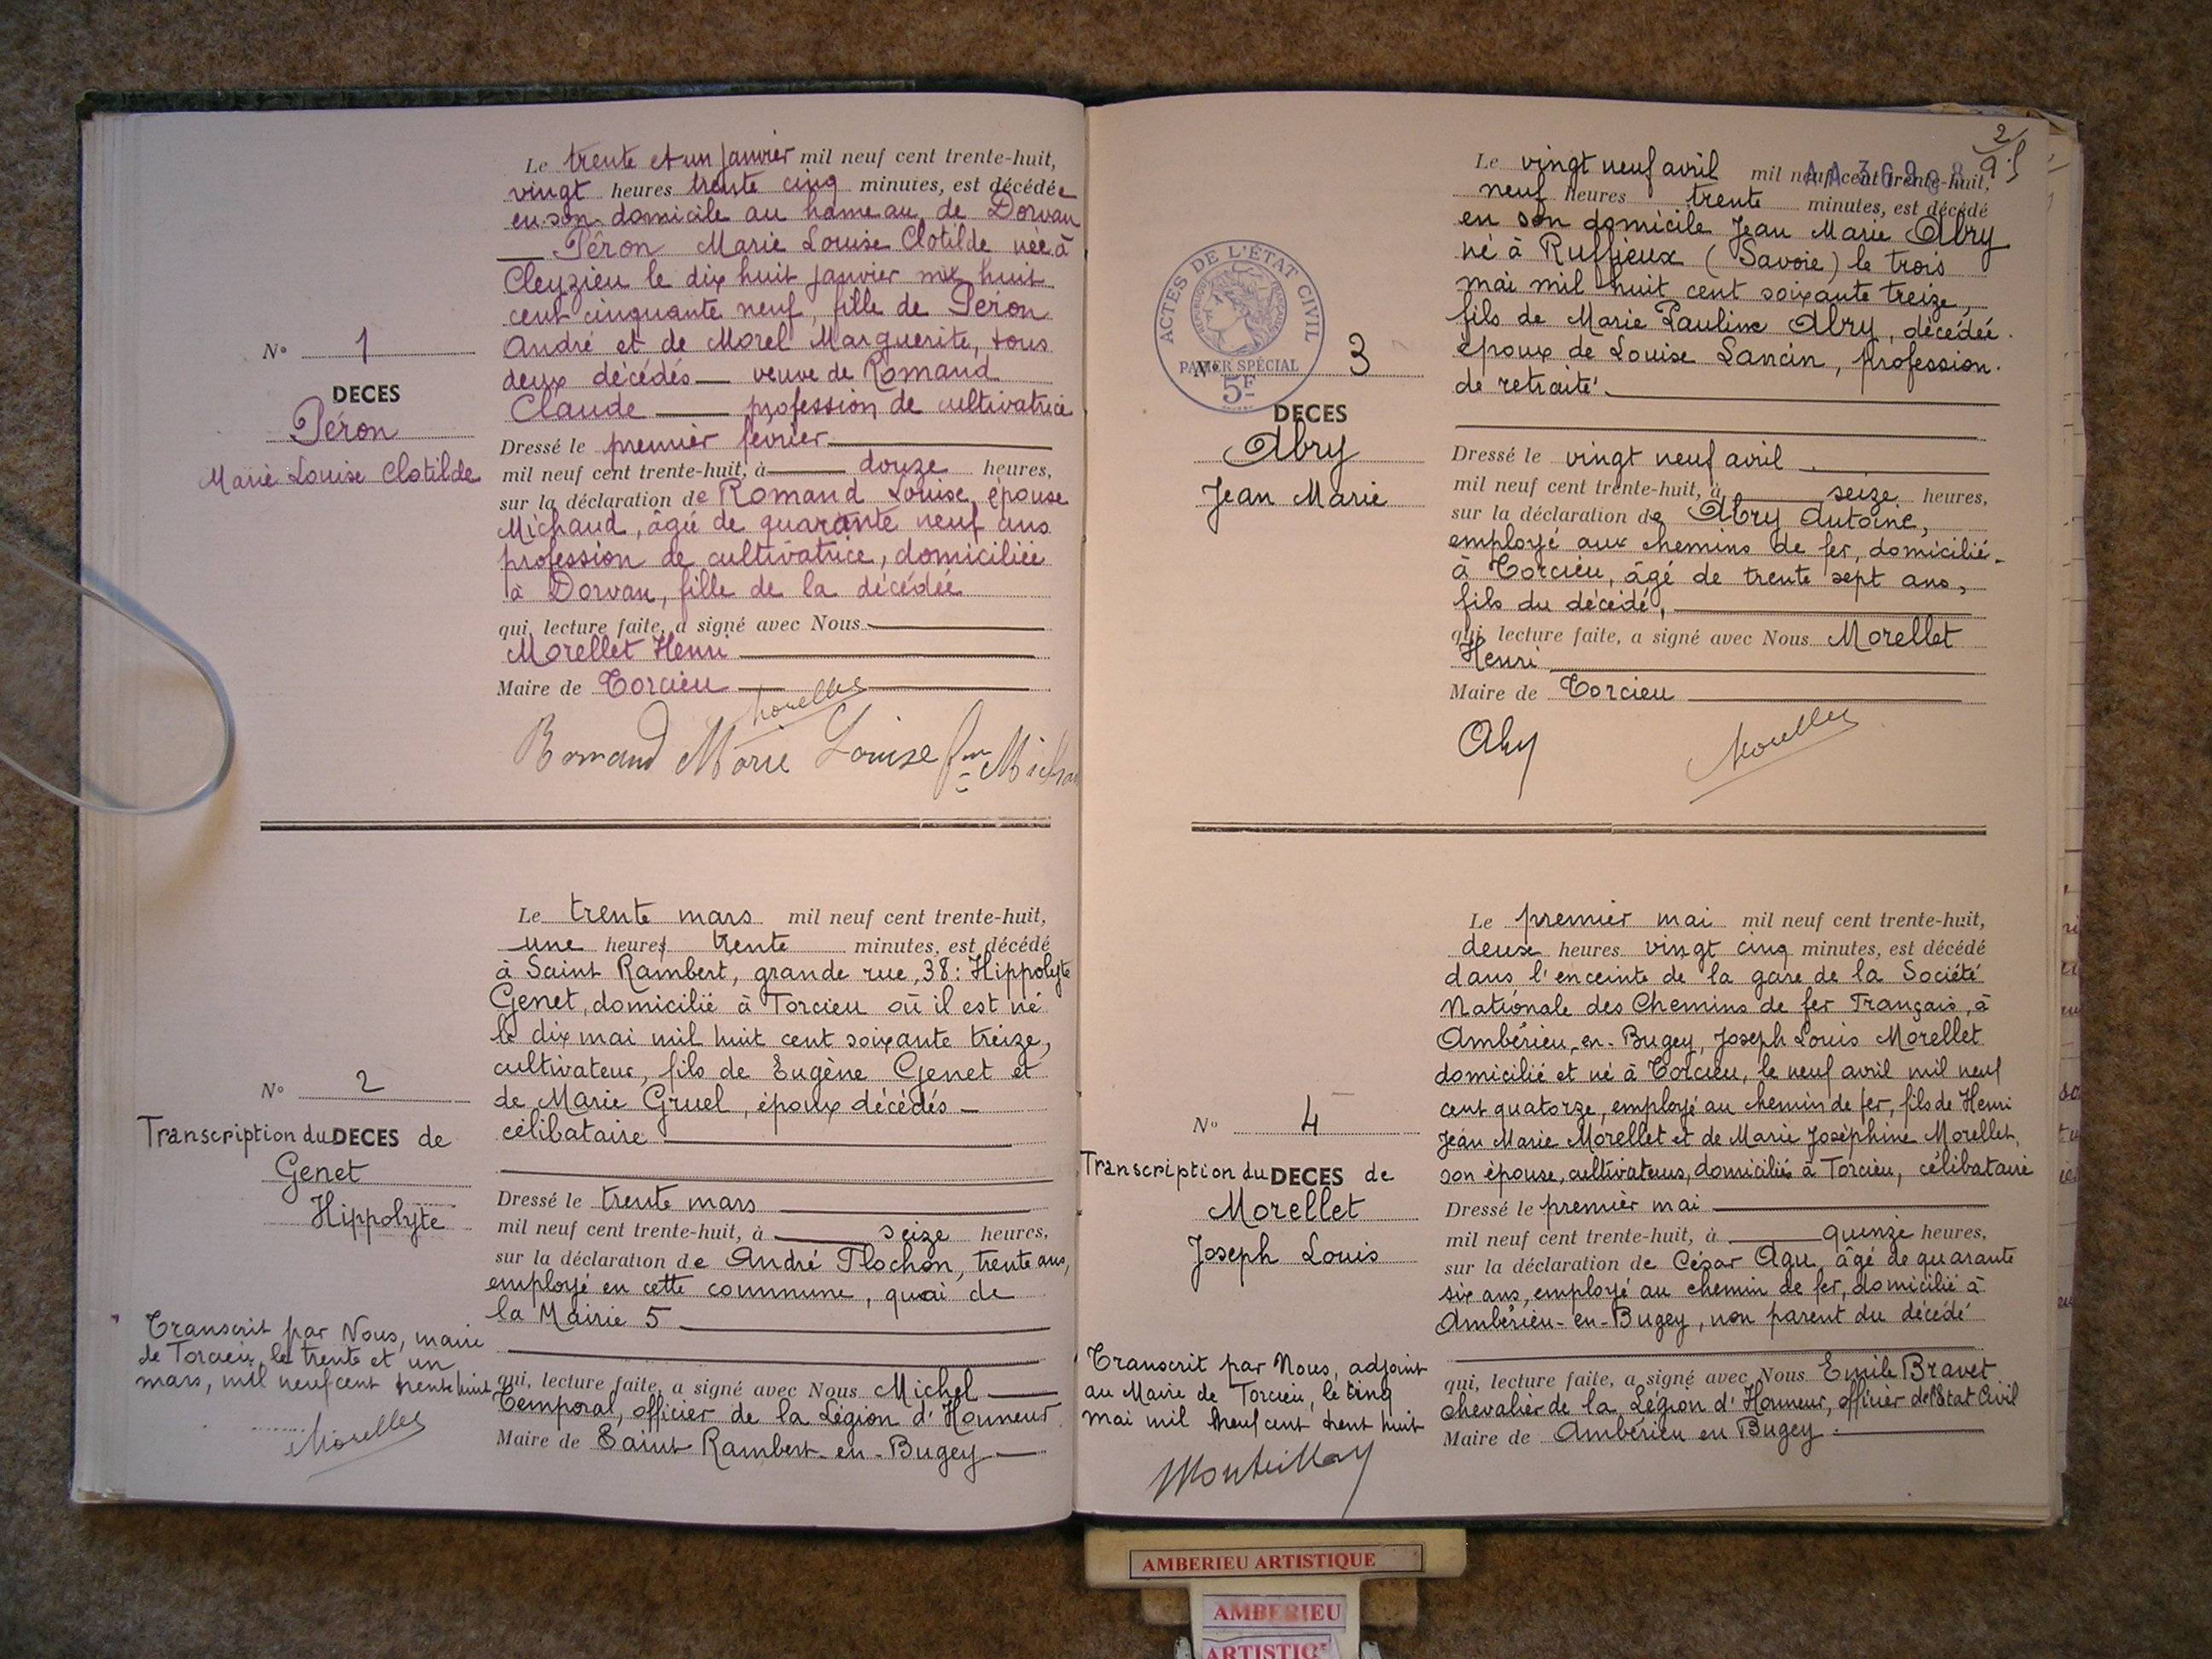 Le trente et un janvier mil neuf cent trente-huit,
vingt heures trente cinq minutes, est décédée
en son domicile au hameau de Dorvan
Péron Marie Louise Clotilde née à
Cleyzieu le dix huit janvier mil huit
cent cinquante neuf, fille de Péron
André et de Morel Marguerite, tous
deux décédés — veuve de Romand
Claude — profession de cultivatrice
N° 1
DECES
Péron
Marie Louise Clotilde
Dressé le premier février
mil neuf cent trente-huit, à douze heures,
sur la déclaration de Romand Louise, épouse
Michaud, âgée de quarante neuf ans
profession de cultivatrice, domiciliée
à Dorvan, fille de la décédée
qui, lecture faite, a signé avec Nous
Morellet Henri
Maire de Torcieu
Morellet
Romand Marie Louise fme Michaud
Le trente mars mil neuf cent trente-huit,
une heures trente minutes, est décédé
à Saint Rambert, grande rue, 38: Hippolyte
Genet, domicilié à Torcieu où il est né
le dix mai mil huit cent soixante treize,
cultivateur, fils de Eugène Genet et
de Marie Gruel, époux décédés —
célibataire
N° 2
Transcription du DECES de
Genet
Hippolyte
Dressé le trente mars
mil neuf cent trente-huit, à seize heures,
sur la déclaration de André Flochon, trente ans,
employé en cette commune, quai de
la Mairie 5
Transcrit par Nous, maire
de Torcieu, le trente et un
mars, mil neuf cent trente huit
Morellet
qui, lecture faite, a signé avec Nous Michel
Temporal, officier de la Légion d'Honneur
Maire de Saint Rambert-en-Bugey
2
Le vingt neuf avril mil neuf cent trente-huit,
neuf heures trente minutes, est décédé
en son domicile Jean Marie Abry
né à Ruffieux (Savoie) le trois
mai mil huit cent soixante treize,
fils de Marie Pauline Abry, décédée.
époux de Louise Lancin, profession.
de retraité.
ACTES DE L'ÉTAT CIVIL
PAPIER SPÉCIAL
5F
N° 3
DECES
Abry
Jean Marie
Dressé le vingt neuf avril
mil neuf cent trente-huit, à seize heures,
sur la déclaration de Abry Antoine,
employé aux chemins de fer, domicilié
à Torcieu, âgé de trente sept ans,
fils du décédé,
qui, lecture faite, a signé avec Nous Morellet
Henri
Maire de Torcieu
Abry
Morellet
Le premier mai mil neuf cent trente-huit,
deux heures vingt cinq minutes, est décédé
dans l'enceinte de la gare de la Société
Nationale des Chemins de fer Français, à
Ambérieu-en-Bugey, Joseph Louis Morellet
domicilié et né à Torcieu, le neuf avril mil neuf
cent quatorze, employé au chemin de fer, fils de Henri
Jean Marie Morellet et de Marie Joséphine Morellet,
son épouse, cultivateurs, domiciliés à Torcieu, célibataire
N° 4
Transcription du DECES de
Morellet
Joseph Louis
Dressé le premier mai
mil neuf cent trente-huit, à quinze heures,
sur la déclaration de César Agu, âgé de quarante
six ans, employé au chemin de fer, domicilié à
Ambérieu-en-Bugey, non parent du décédé
Transcrit par Nous, adjoint
au Maire de Torcieu, le cinq
mai mil neuf cent trent huit
qui, lecture faite, a signé avec Nous Emile Bravet
chevalier de la Légion d'Honneur, officier de l'Etat Civil
Maire de Ambérieu en Bugey
AMBERIEU ARTISTIQUE
AMBERIEU